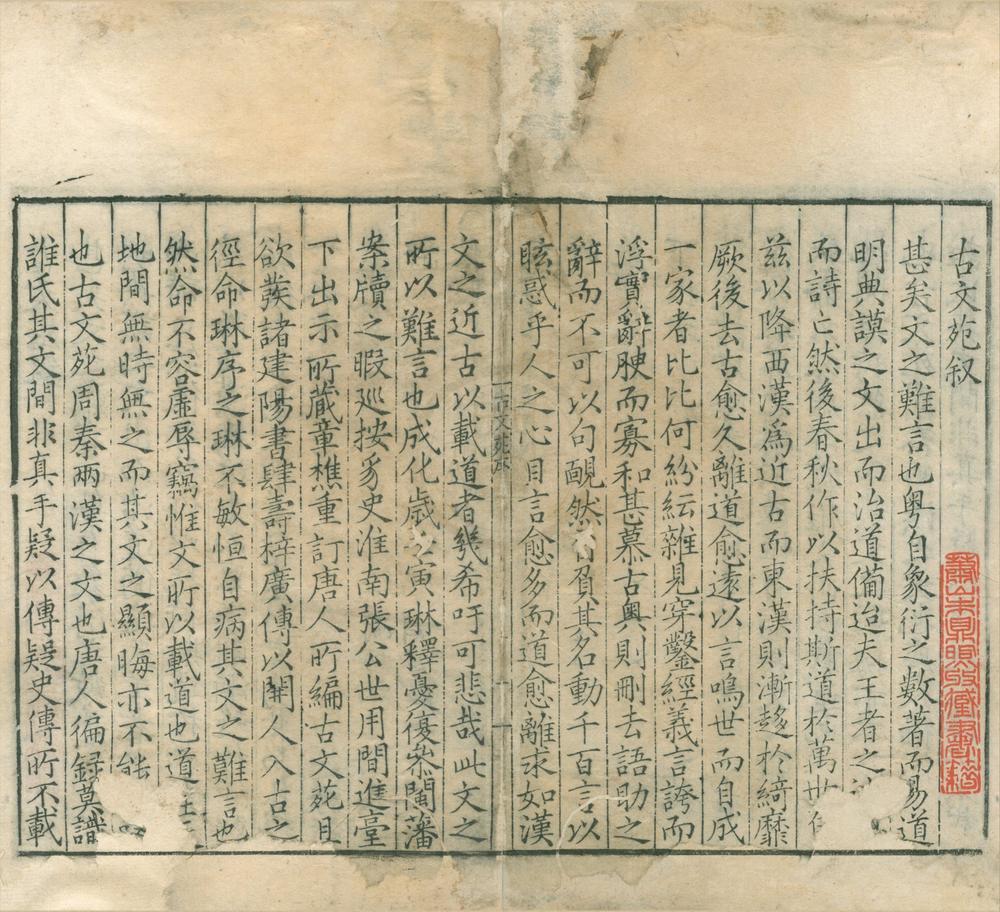 古文苑叙
甚矣文之難言也粤自象衍之數著而易道
明典謨之文出而治道備迨夫王者之
而詩亡然後春秋作以扶持斯道於萬世
兹以降西漢爲近古而東漢則漸趍於綺靡
厥後去古愈久離道愈遠以言鳴世而自成
一家者比比何紛紜雜見穿鑿經義言誇而
浮實辭腴而寡和甚慕古奥則刪去語助之
辭而不可以句靦然自負其名動千百言以
眩惑乎人之心目言愈多而道愈離求如漢
古文苑序
一
文之近古以載道者幾希吁可悲哉此文之
所以難言也成化歳壬寅琳釋憂復叅閩藩
案牘之暇廵按豸史淮南張公世用間進臺
下出示所蔵章樵重訂唐人所編古文苑且
欲䟽諸建陽書肆壽梓廣傳以開人入古之
徑命琳序之琳不敏恒自病其文之難言也
然命不容虚辱竊惟文所以載道也道在
地間無時無之而其文之顯晦亦不能
也古文苑周秦兩漢之文也唐人徧録莫識
誰氏其文間非真手疑以傳疑史傳所不載
蕭山朱鼎煦收藏書籍